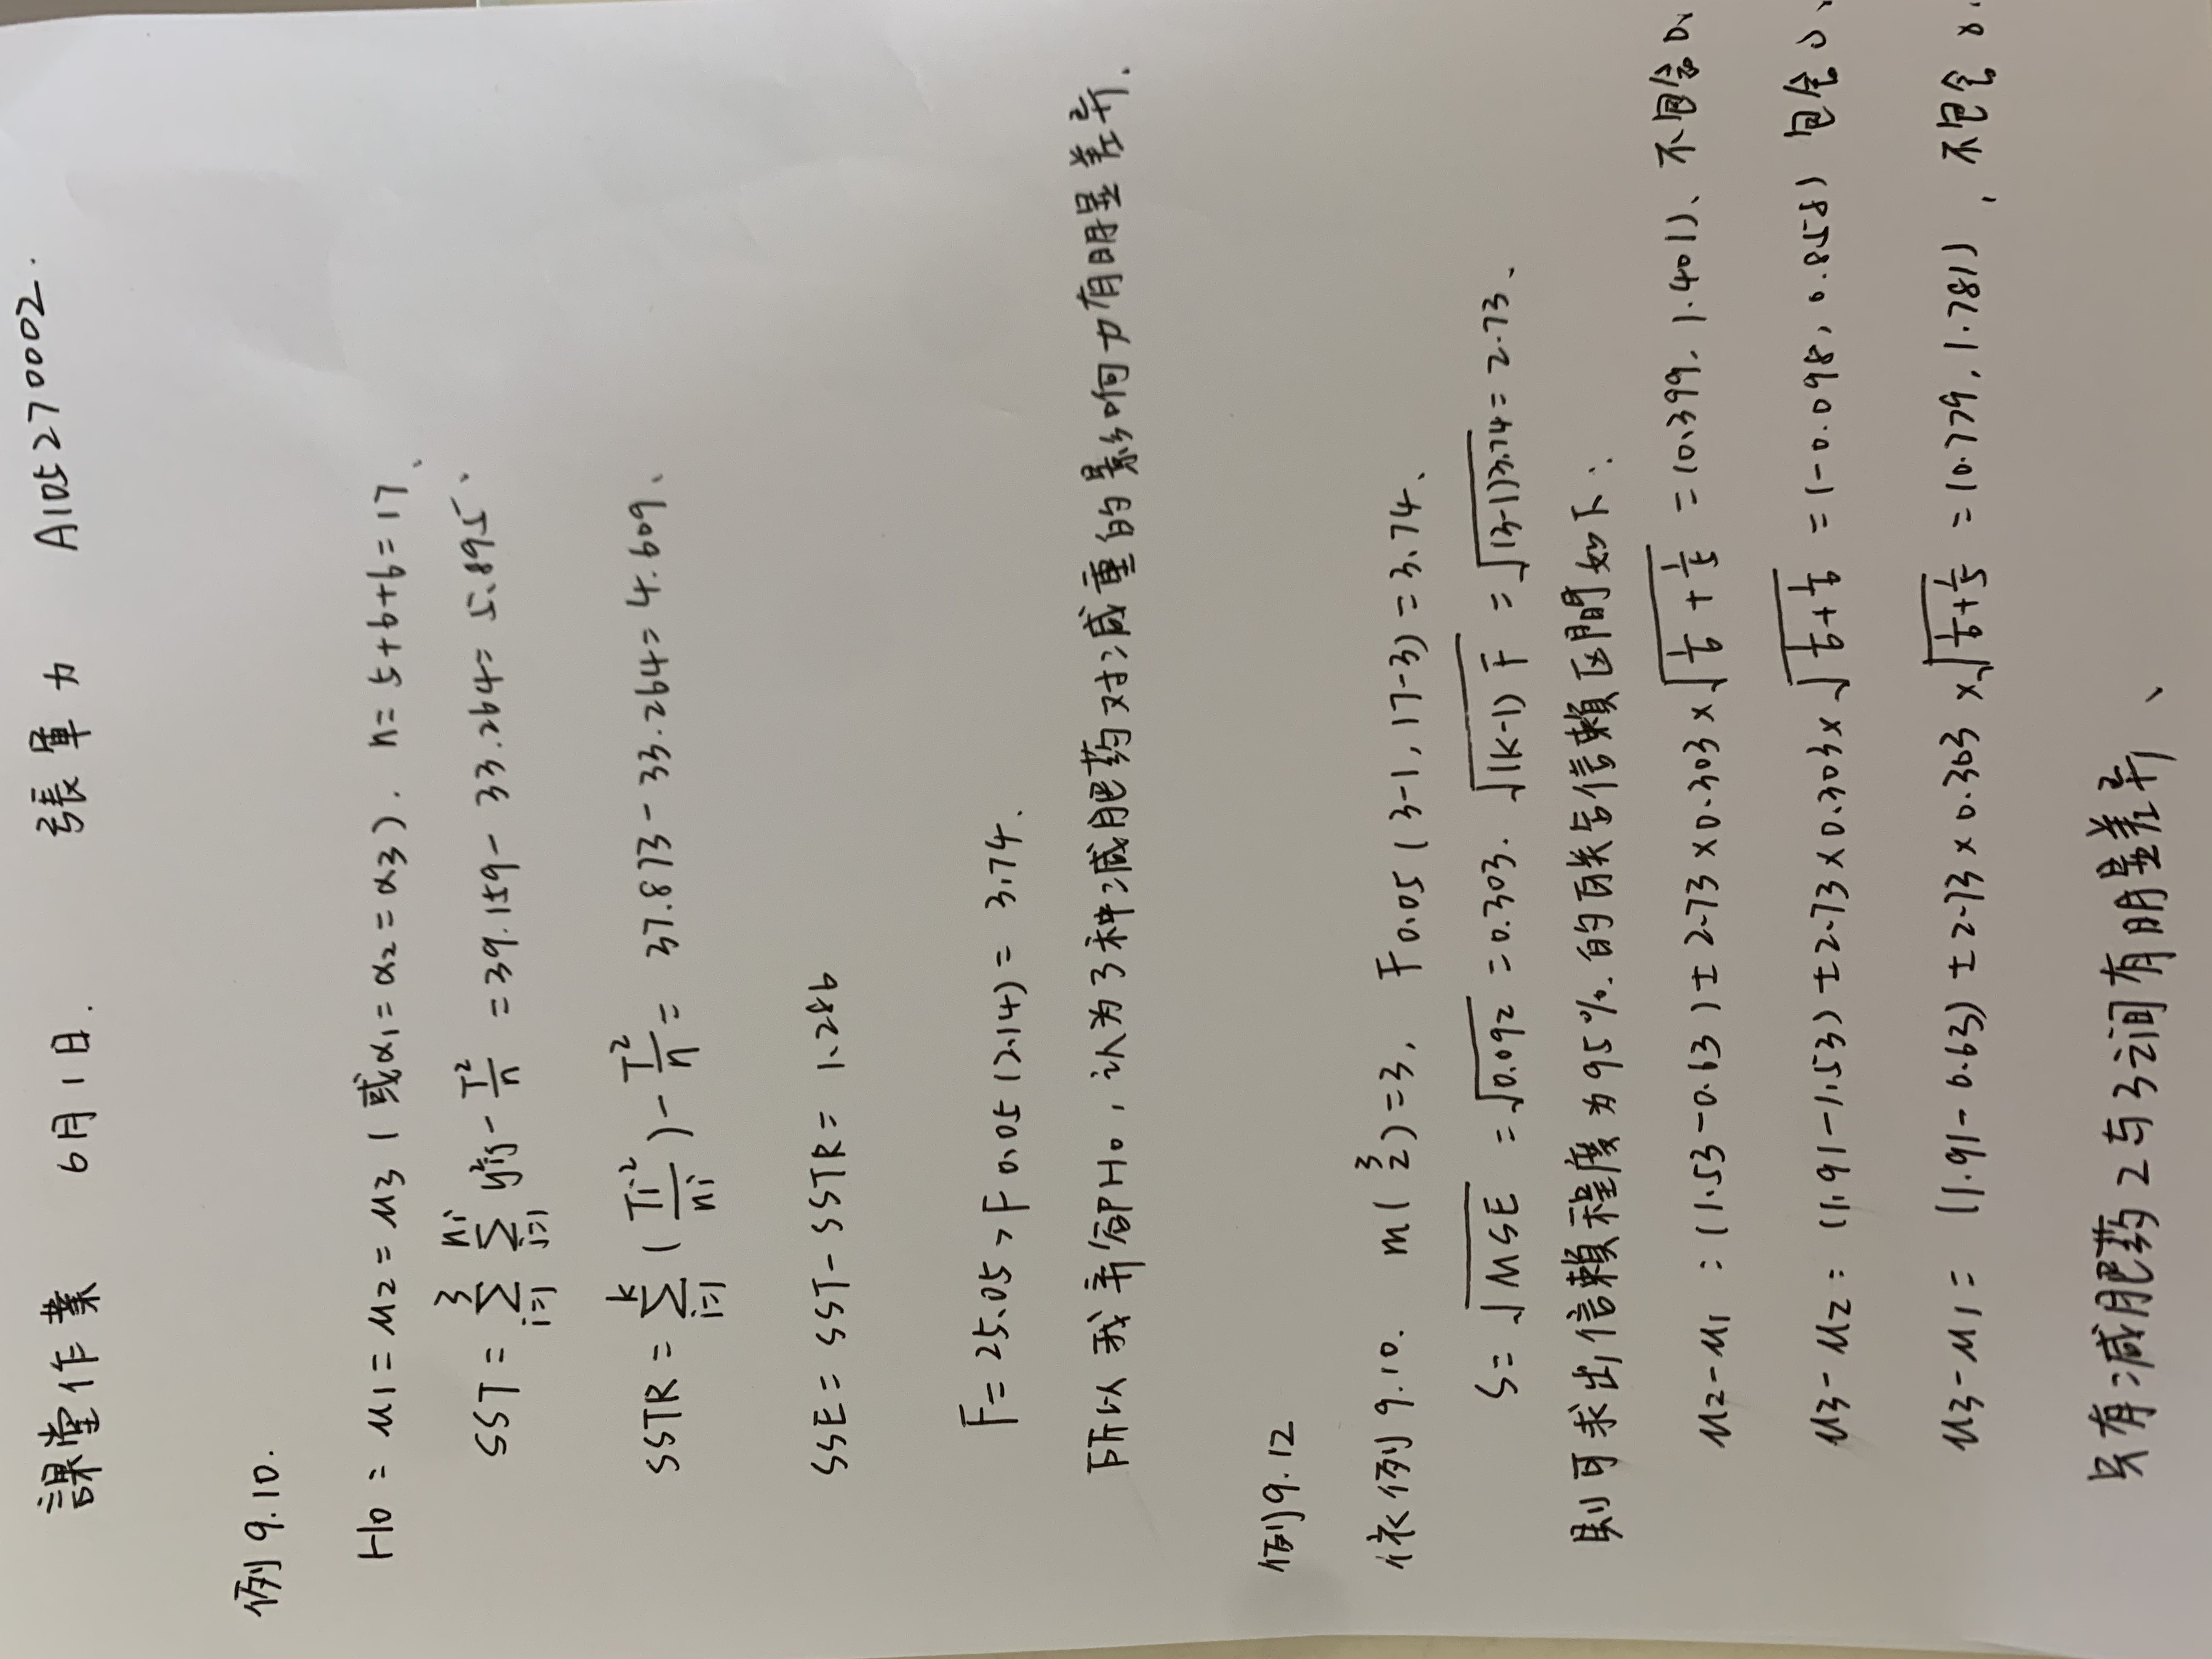 課堂作業 6月1日. 張軍力 A105270002.
例9.10.
H0 = μ1 = μ2 = μ3 ( 或α1 = α2 = α3 ). n = 5+6+6 = 17、
SST = ∑_{i=1}^{3} ∑_{j=1}^{ni} y²ij - T²/n = 39.159 - 33.264 = 5.895、
SSTR = ∑_{i=1}^{k} ( Ti²/ni ) - T²/n = 37.873 - 33.264 = 4.609、
SSE = SST - SSTR = 1.286
F = 25.05 > F 0.05 (2.14) = 3.74.
所以我弃卻H0,认为3种减肥药对减重的影响力有明显差异.
例9.12
依例9.10. m( 3 2 ) = 3, F0.05 ( 3-1, 17-3) = 3.74、
S = √MSE = √0.092 = 0.303. √(K-1) F = √(3-1)3.74 = 2.73、
則可求出信賴程度为95%.的联合信賴区間如下:
μ2-μ1 : (1.53-0.63) ± 2.73 × 0.303 × √1/6 + 1/5 = (0.399, 1.401)、不包含0、
μ3-μ2 : (1.91-1.53) ± 2.73 × 0.303 × √1/6 + 1/6 = (-0.098, 0.858) 包含0、
μ3-μ1 = (1.91-0.63) ± 2.73 × 0.303 × √1/6 + 1/5 = (0.779, 1.781) , 不包含0.
只有减肥药2与3之间有明显差异、